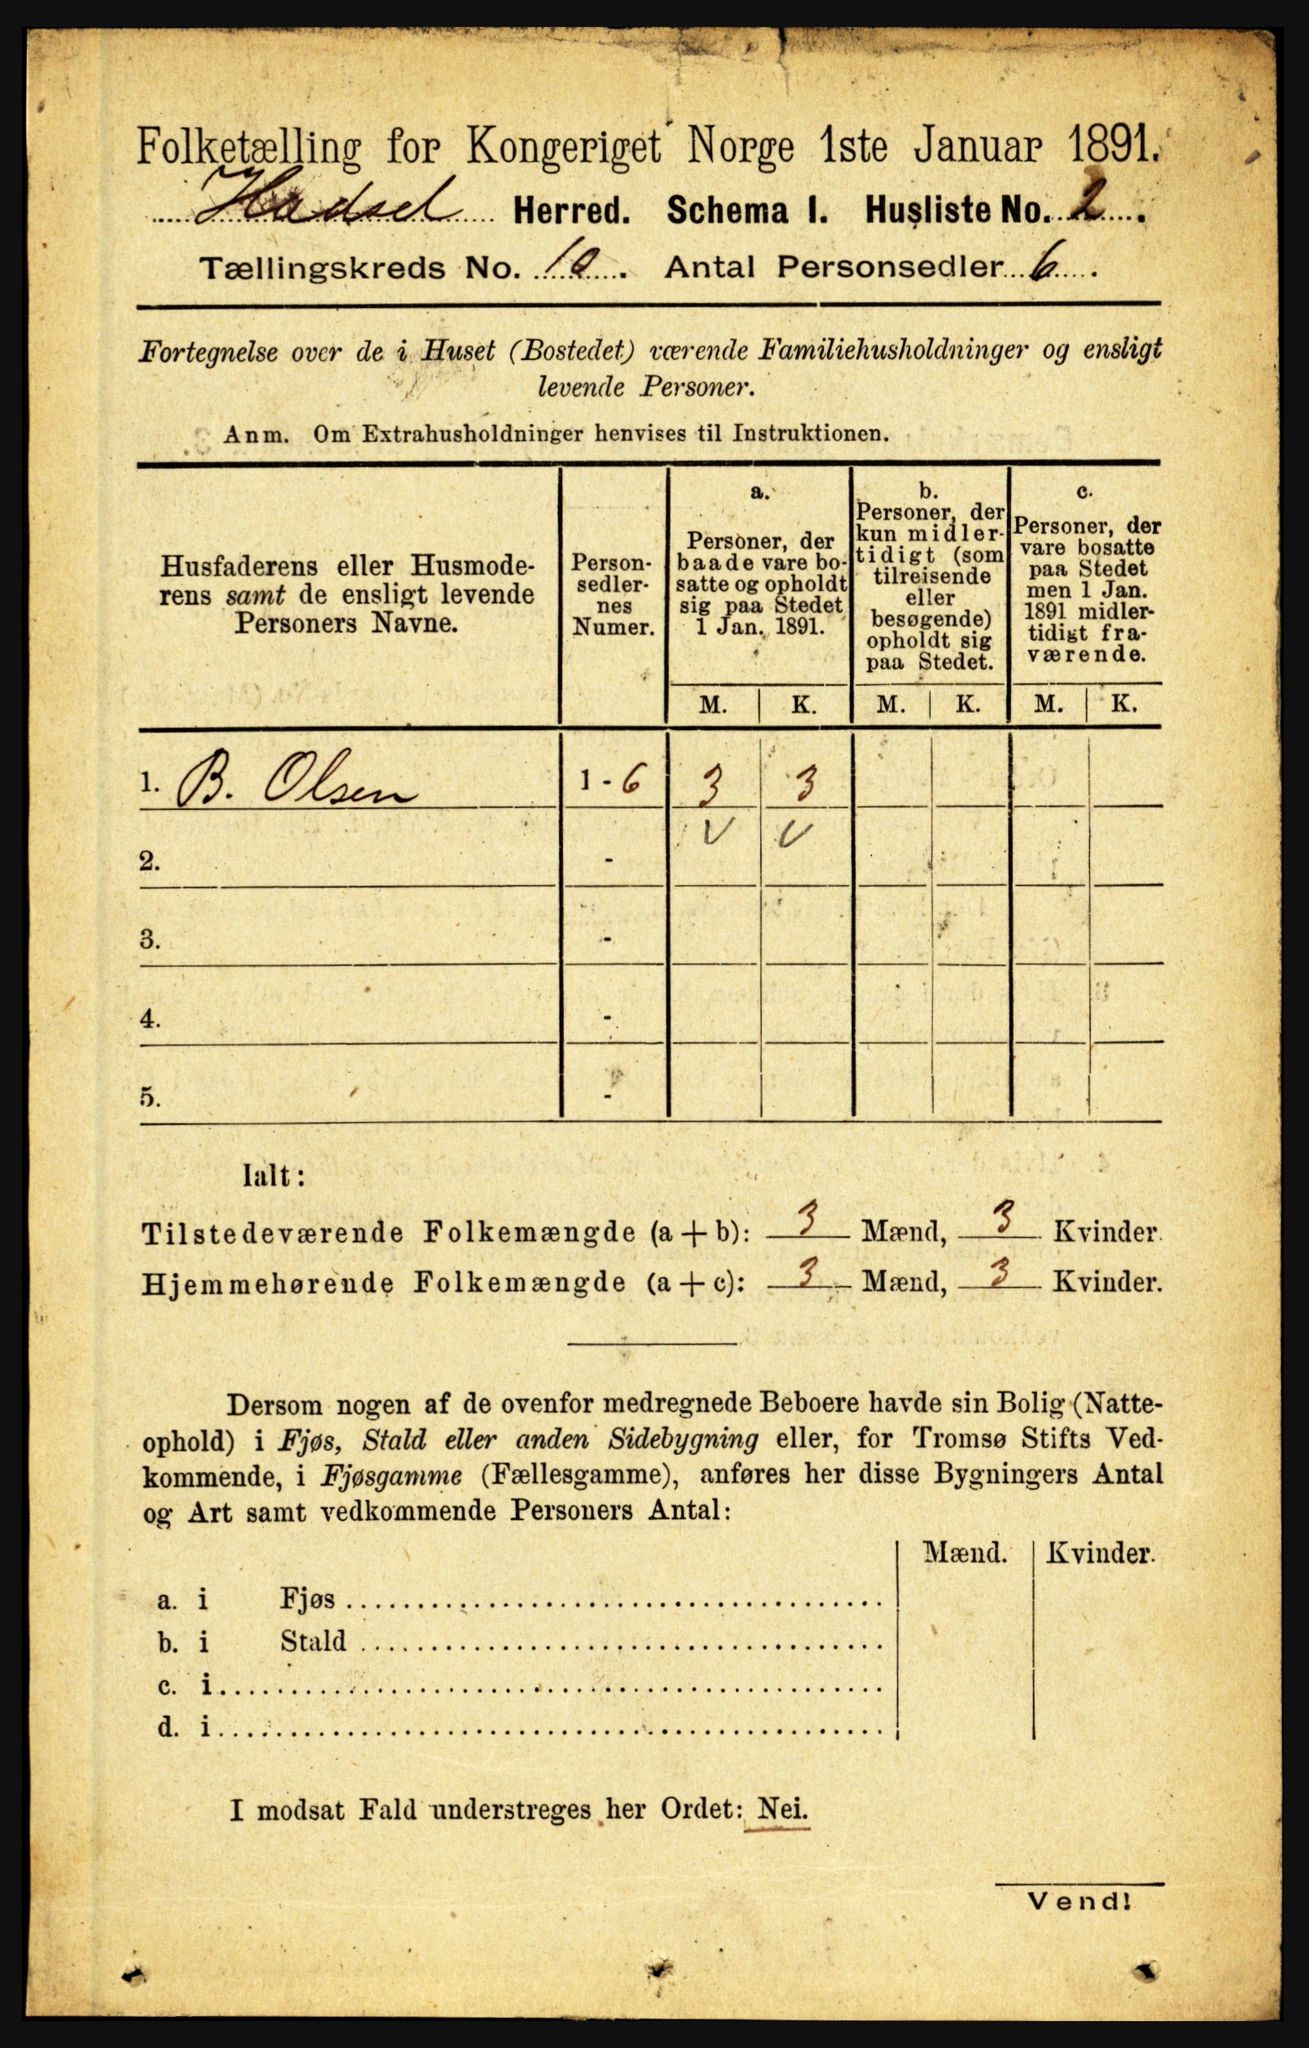 Folketælling for Kongeriget Norge 1ste Januar 1891.
Hadsel Herred. Schema I. Husliste No. 2.
Tællingskreds No. 10. Antal Personsedler 6.
Fortegnelse over de i Huset (Bostedet) værende Familiehusholdninger og ensligt
levende Personer.
Anm. Om Extrahusholdninger henvises til Instruktionen.
Husfaderens eller Husmode-
rens samt de ensligt levende
Personers Navne.
Person-
sedler-
nes
Numer.
a.
Personer, der
baade vare bo-
satte og opholdt
sig paa Stedet
1 Jan. 1891.
b.
Personer, der
kun midler-
tidigt (som
tilreisende
eller
besøgende)
opholdt sig
paa Stedet.
c.
Personer, der
vare bosatte
paa Stedet
men 1 Jan.
1891 midler-
tidigt fra-
værende.
M. K. M. K. M. K.
1. B. Olsen 1 - 6 3 3
2. -
3. -
4. -
5. -
Ialt:
Tilstedeværende Folkemængde (a + b): 3 Mænd, 3 Kvinder.
Hjemmehørende Folkemængde (a + c): 3 Mænd, 3 Kvinder.
Dersom nogen af de ovenfor medregnede Beboere havde sin Bolig (Natte-
ophold) i Fjøs, Stald eller anden Sidebygning eller, for Tromsø Stifts Ved-
kommende, i Fjøsgamme (Fællesgamme), anføres her disse Bygningers Antal
og Art samt vedkommende Personers Antal:
Mænd. Kvinder.
a. i Fjøs
b. i Stald
c. i
d. i
I modsat Fald understreges her Ordet: Nei.
Vend!